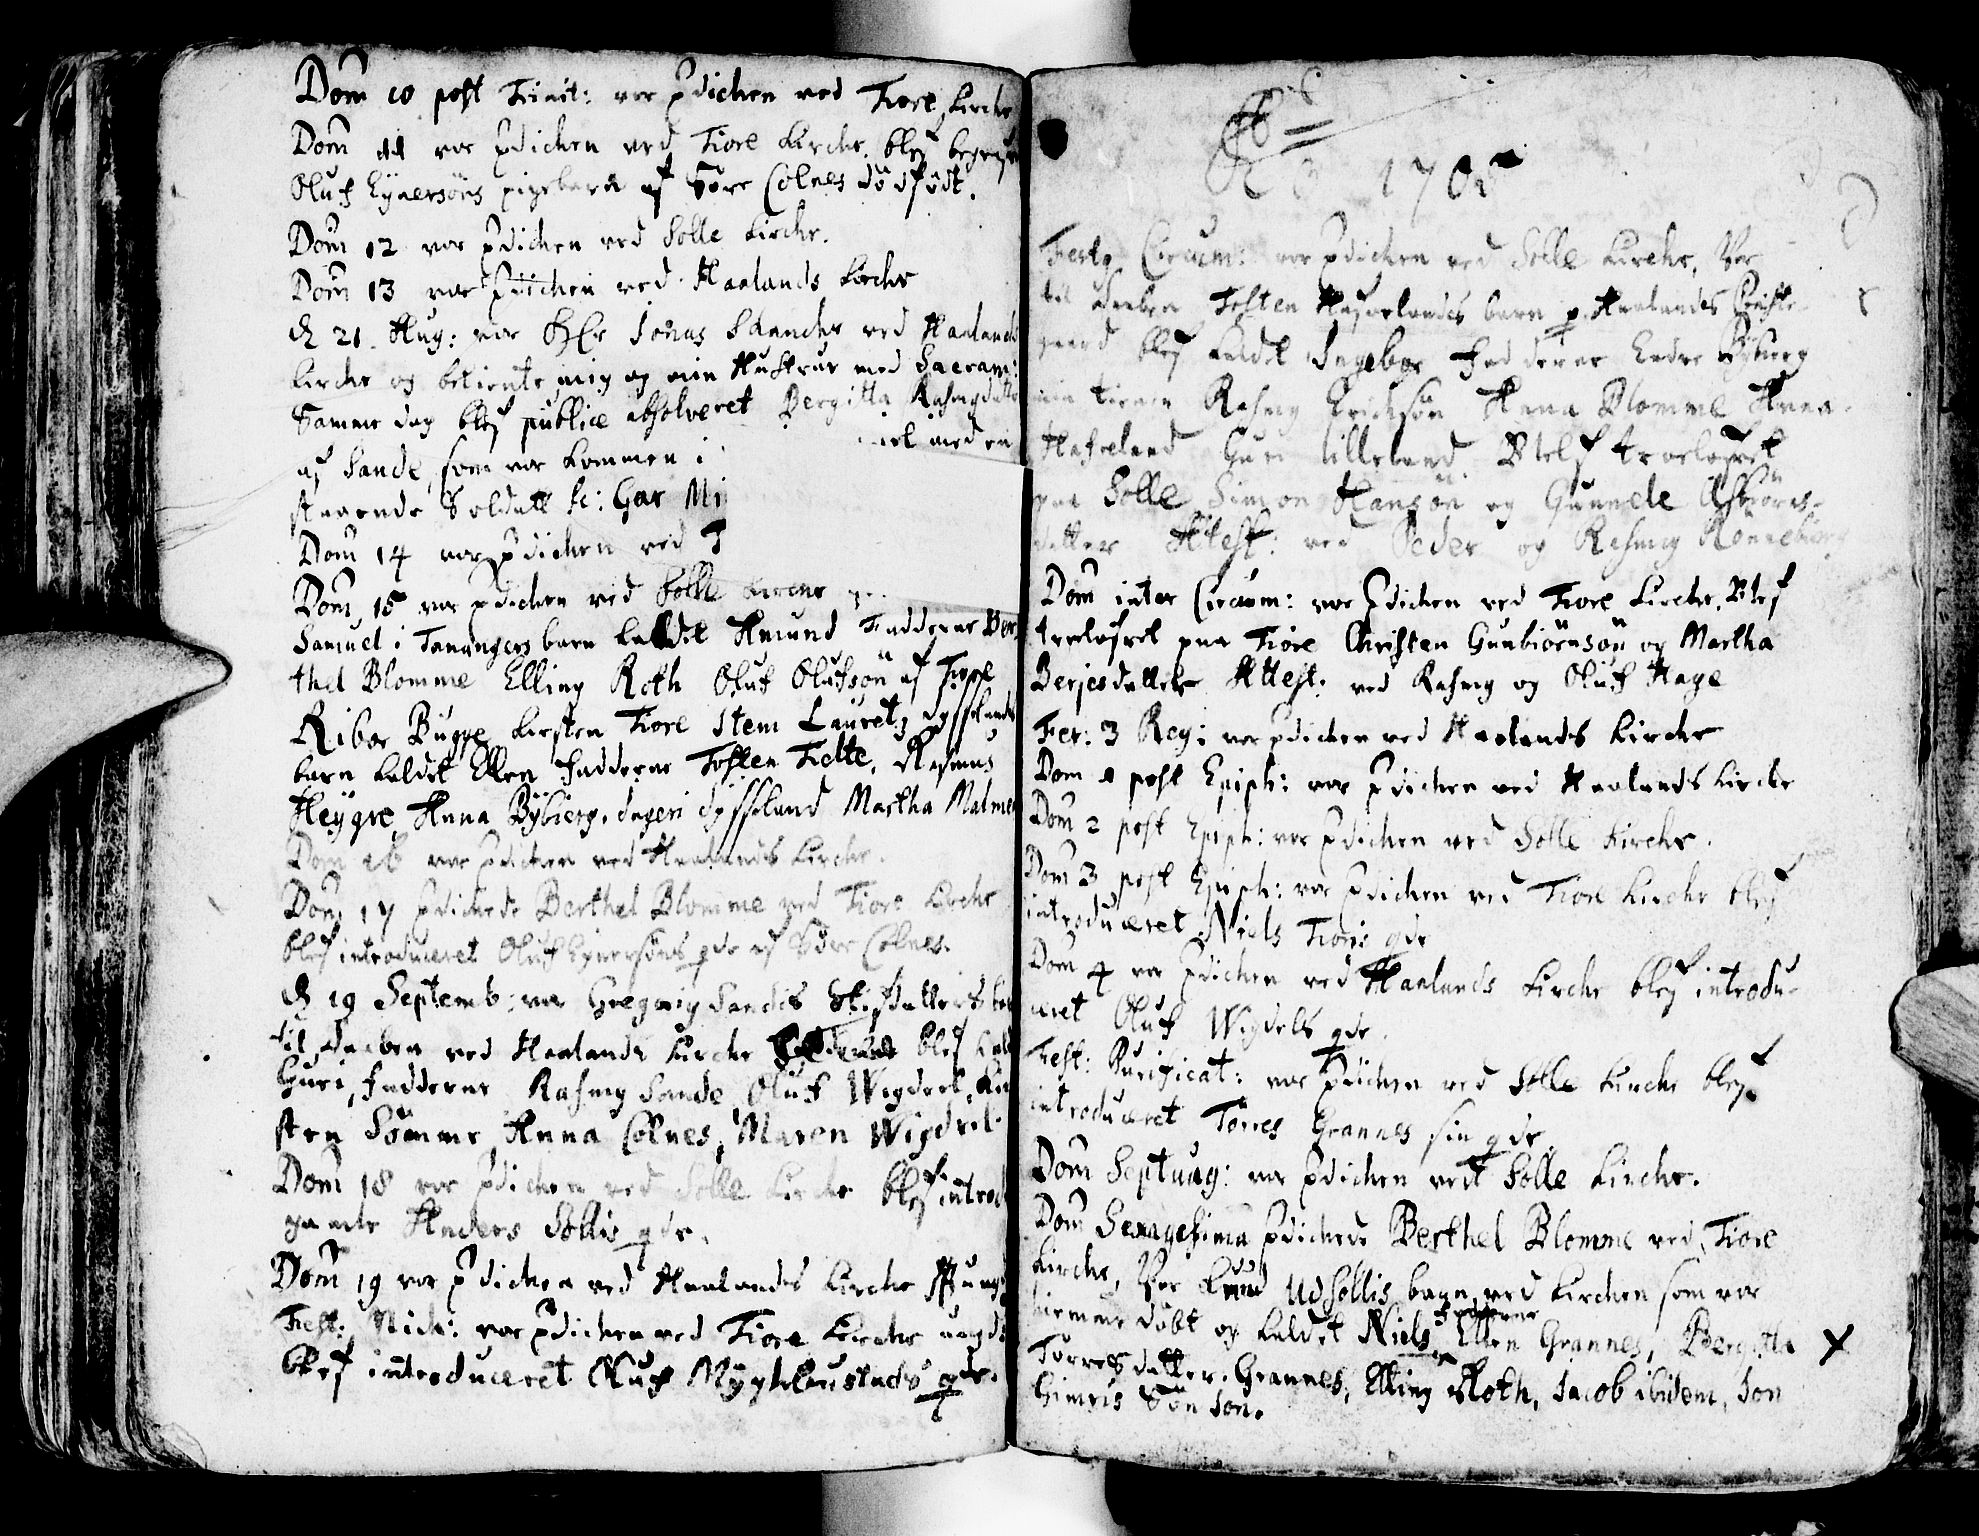 Dom 10 post Trinit: var Prdichen ved Tiore Kirche
Dom 11 var Prdichen ved Tiore Kirche. blef begrafv
Oluf Eynersöns pigebarn af Söre Colnes dödfödt.
Dom 12 var Prdichen ved Solle Kirche.
Dom 13 var Prdichen ved Haalands Kirche
d 21. Aug: var Jonas ved Haalands
Kirche og betiente mig og min Hustrue med Sacram:
Samme dag blef publice absolveret Bergitta Rasmgdatter
af Sande, som var kommen i med en
staaende Soldatt sc: Gar Mi
Dom 14 var Prdichen ved T
Dom 15 var Prdichen ved Solle Kirche
Samuel i Tanangers barn kaldet Amund Fadderne Ber
thel Blomme Elling Roth Oluf Olufsön af Tiore
Ribor Bugge Kirsten Tiore Item Lauretz
barn kaldet Ellen Fadderne Tosten Tielte, Rasmus
Heygre Anna Bÿbierg, Martha Malme
Dom 16 var Prdichen ved Haalands Kirche.
Dom 17 Prdichede Berthel Blomme ved Tiore Kirche
blef introduceret Oluf Eynersöns qde af Söre Colnes.
d 19 Septemb: var Gregorig Sandes Stifdatters
til daaben ved Haalands Kirche blef kald
Guri, Fadderne Rasmg Sande Oluf Wigdrel, Kir
sten Sömme, Anna Colnes, Maren Wigdrel.
Dom 18 var Prdichen ved Solle Kirche blef introd
gamle Anders Sollis qde.
Dom 19 var Prdichen ved Haalands Kirche
Fest: Mich: var Prdichen ved Tiore Kirche
blef introduceret Oluf qde.
1705
Festo Circum: var Prdichen ved Solle Kirche, Var
til daaben Tosten Hafrlandes barn p. Haalandes Preste
gaard blef kaldet Ingebor Fadderne Endre Bÿberg
min tienere Rasmg Erichsön Anna Blomme Anna
Hafreland Guri lilleland Blef troelofvet
paa Solle Simon Hansön og Gunnele Asbiörns-
datter Attest: ved Peder og Rasmg Rönneberg
Dom inter Circum: var Prdichen ved Tiore Kirche, Blef
trolofvet paa Tiore Christen Gunbiörnsön og Martha
Berjesdatter Attest: ved Rasmg og Oluf Hage
Fer: 3 Reg: var Prdichen ved Haalands Kirche
Dom 1 post Epiph: var Prdichen ved Haalands Kirche
Dom 2 post Epiph: var Prdichen ved Solle Kirche.
Dom 3 post Epiph: var Prdichen ved Tiore Kirche blef
introduceret Niels Tioris qde
Dom 4 var Prdichen ved Haalands Kirche blef introdu-
ceret Oluf Wigdels qde.
Fest: Purificat: var Prdichen ved Solle Kirche blef
introduceret Törres Grannes sin qde.
Dom Septuag: var Prdichen ved Solle Kirche.
Dom Sexagesima Prdichede Berthel Blomme ved Tiore
Kirche, Var Knud Udsollis barn ved Kirchen som var
hiemme döbt og kaldet Niels Fadderne Ellen Grannes, Bergitta
Törresdatter Grannes, Elling Roth, Jacob ibidem, Jon
Gimris Sön Jon.